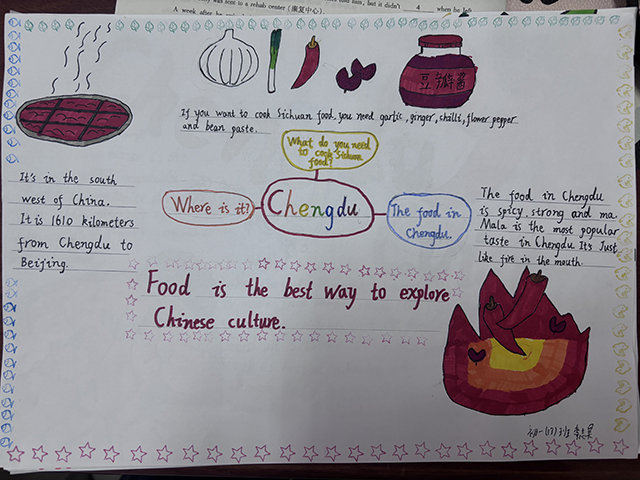 A week after he was sent to a rehab center (康复中心), but it didn't 4 when he left
豆瓣酱
If you want to cook Sichuan food, you need garlic, ginger, shilli, flower pepper
and bean paste.
What do you need
to cook Sichuan
food?
It's in the south
west of China.
It is 1610 kilometers
from Chengdu to
Beijing.
Where is it?
Chengdu
The food in
Chengdu.
The food in Chengdu
is spicy, strong and ma
Mala is the most popular
taste in Chengdu It's Just
like fire in the mouth.
Food is the best way to explore
Chinese culture.
初一(17)班